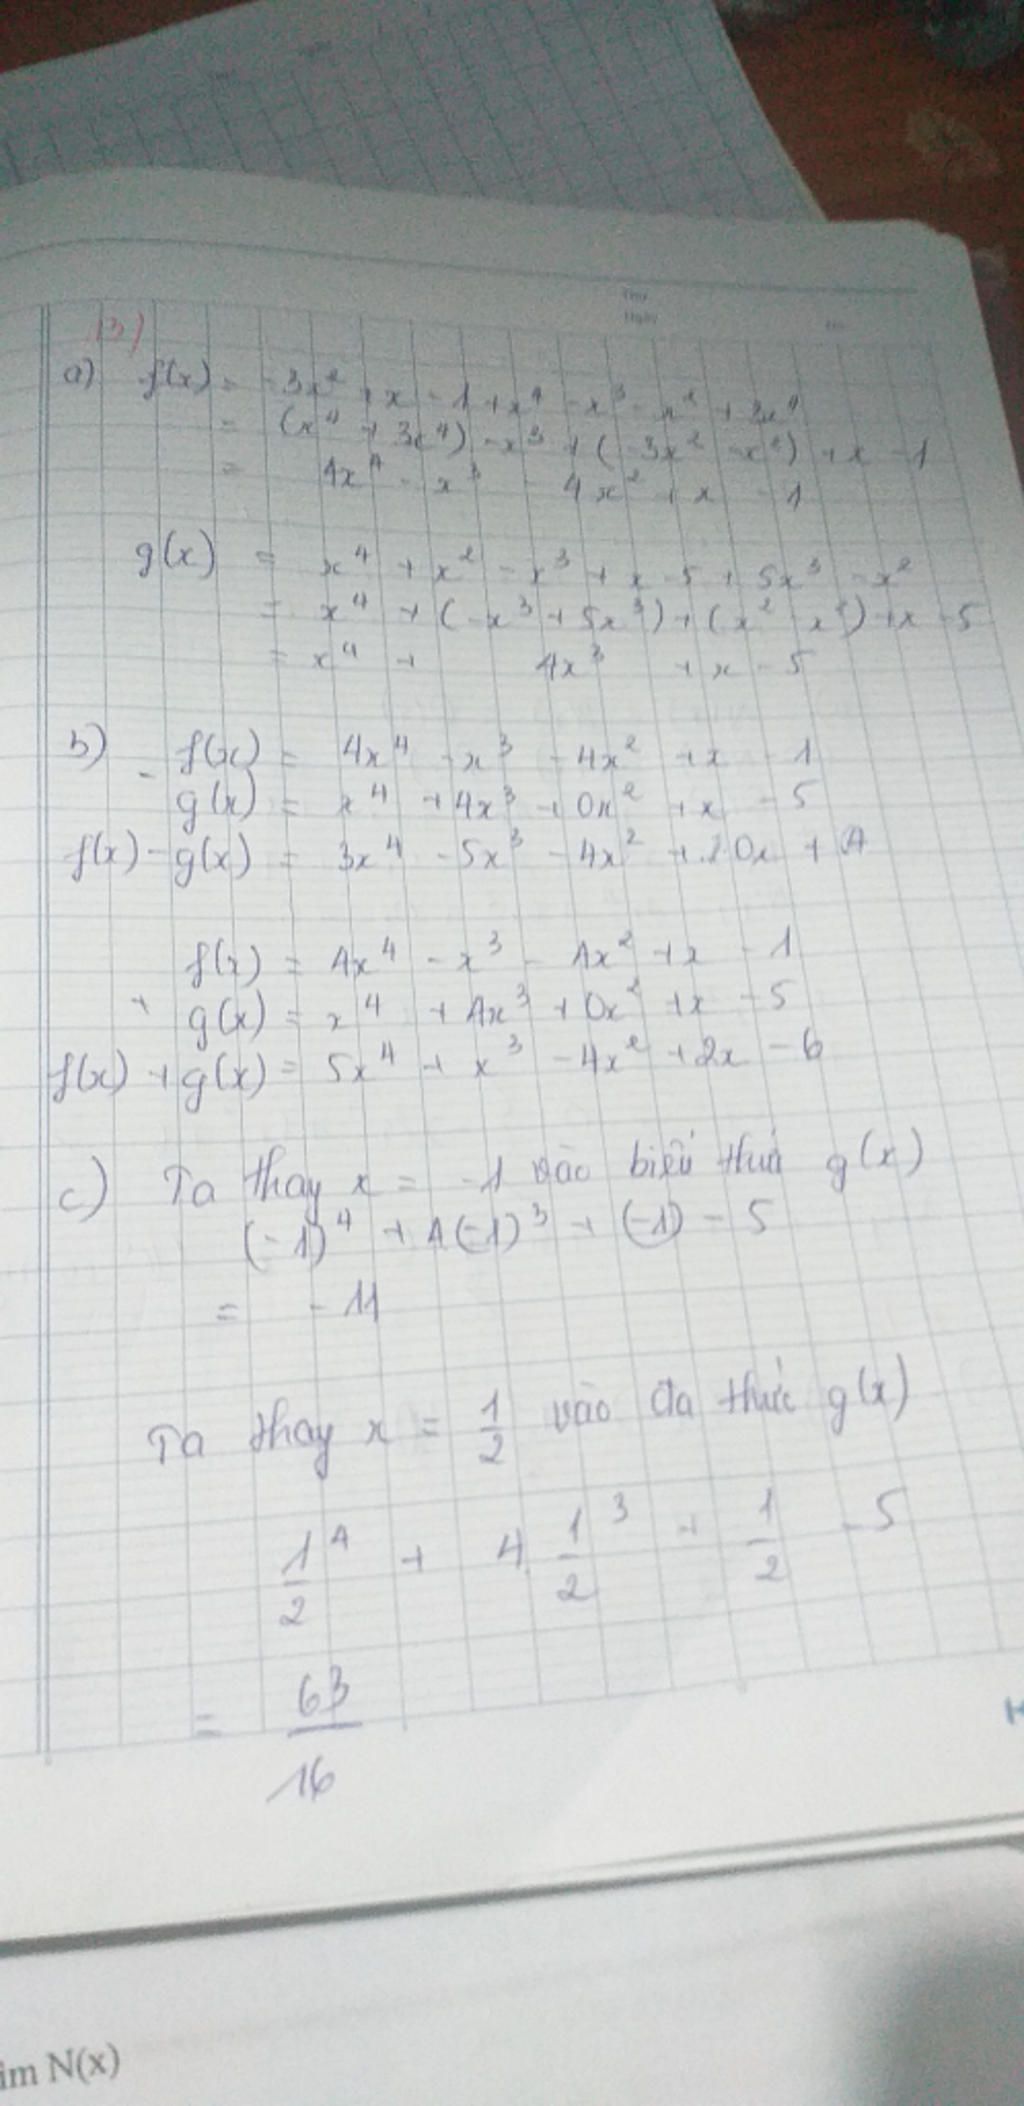 13)
a) f(x) = -3x² + x - 1 + x⁴ - x³ - x² + 3x⁴
= (x⁴ + 3x⁴) - x³ + (-3x² - x²) + x - 1
= 4x⁴ - x³ - 4x² + x - 1
g(x) = x⁴ + x² - x³ + x - 5 + 5x³ - x²
= x⁴ + (-x³ + 5x³) + (x² - x²) + x - 5
= x⁴ + 4x³ + x - 5
b) f(x) = 4x⁴ - x³ - 4x² + x - 1
- g(x) = x⁴ + 4x³ + 0x² + x - 5
f(x) - g(x) = 3x⁴ - 5x³ - 4x² + 0x + 4
f(x) = 4x⁴ - x³ - 4x² + x - 1
+ g(x) = x⁴ + 4x³ + 0x² + x - 5
f(x) + g(x) = 5x⁴ + x³ - 4x² + 2x - 6
c) Ta thay x = -1 vào biểu thức g(x)
(-1)⁴ + 4(-1)³ + (-1) - 5
= -11
Ta thay x = 1/2 vào đa thức g(x)
1/2⁴ + 4 1/2³ + 1/2 - 5
= 63/16
im N(x)